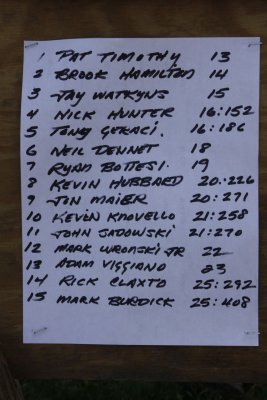 1 PAT TIMOTHY 13
2 BROOK HAMILTON 14
3 JAY WATKYNS 15
4 NICK HUNTER 16:152
5 TONY GERACI. 16:186
6 NEIL DENNET 18
7 RYAN BOTTESI. 19
8 KEVIN HUBBARD 20:226
9 JON MAIER 20:271
10 KEVIN KNOVELLO 21:258
11 JOHN SADOWSKI 21:270
12 MARK WRONSKI JR 22
13 ADAM VIGGIANO 23
14 RICK CLAXTO 25:292
15 MARK BURDICK 25:408